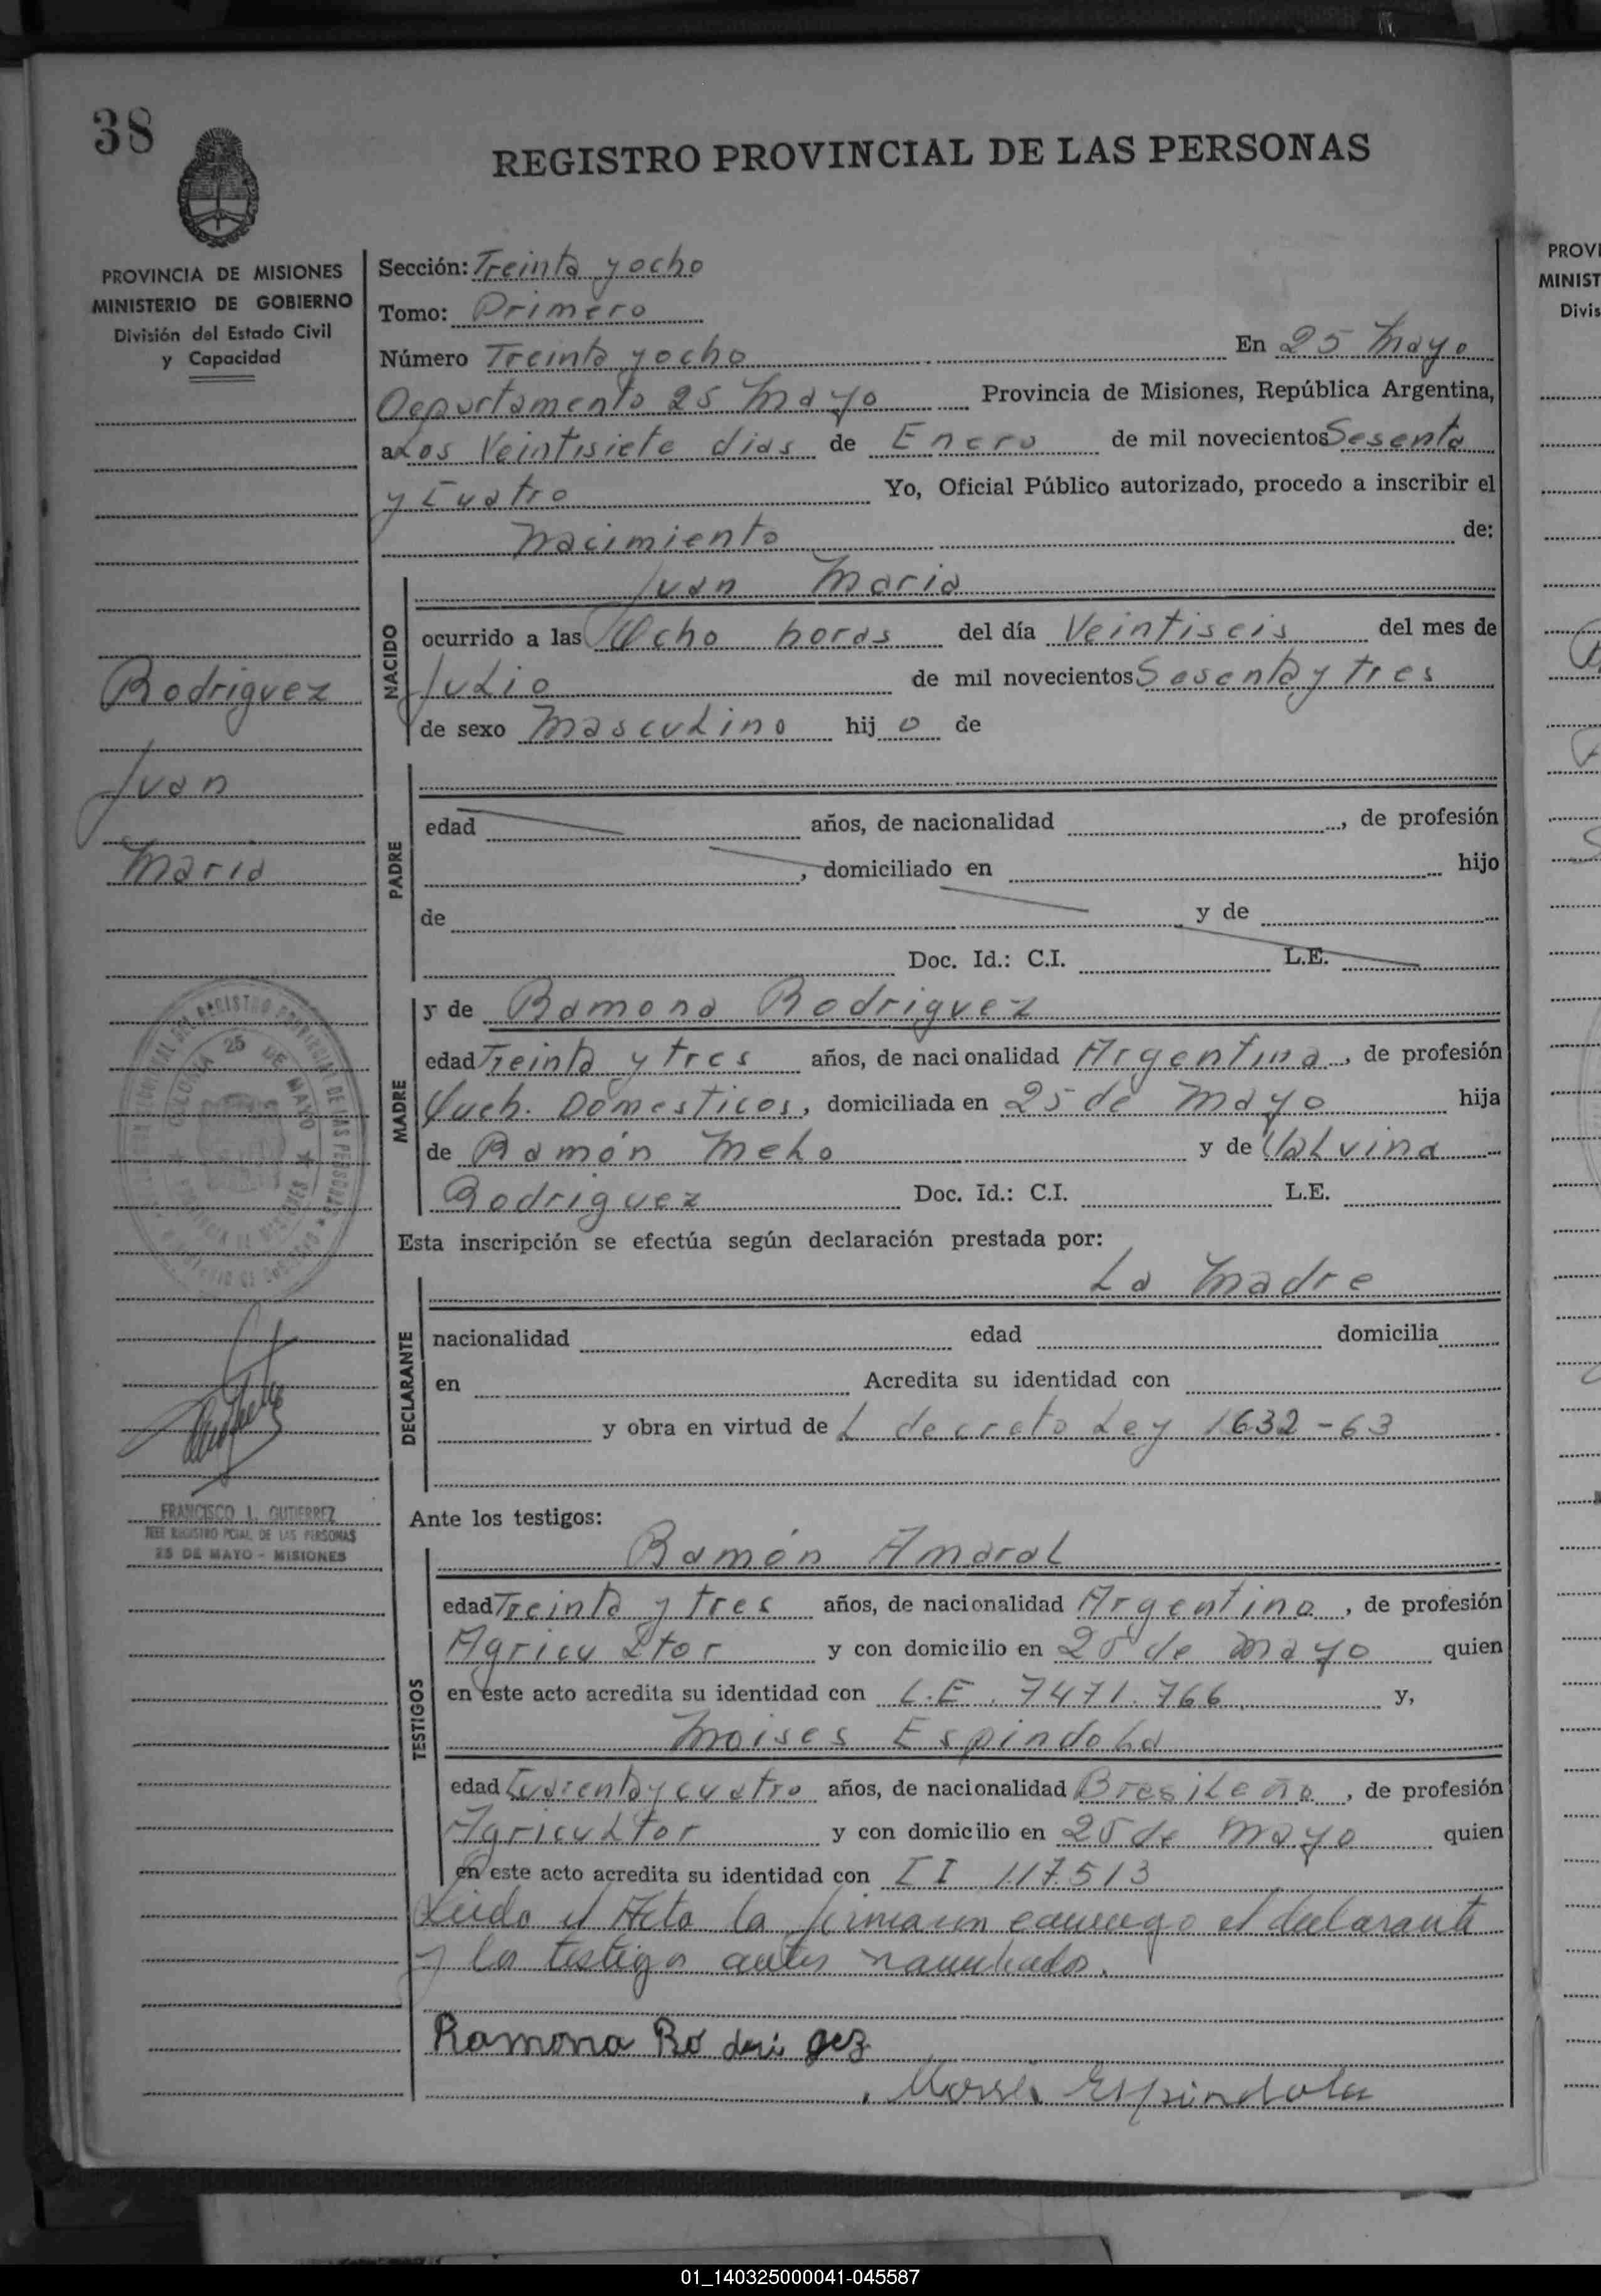 38
REGISTRO PROVINCIAL DE LAS PERSONAS
PROVINCIA DE MISIONES
MINISTERIO DE GOBIERNO
División del Estado Civil
y Capacidad
Rodriguez
Juan
Maria
COLONIA 25 DE MAYO
FRANCISCO I. GUTIERREZ
JEFE REGISTRO PCIAL DE LAS PERSONAS
25 DE MAYO - MISIONES
Sección: Treinta y ocho
Tomo: Primero
Número Treinta y ocho En 25 Mayo
Departamento 25 Mayo Provincia de Misiones, República Argentina,
a Los Veintisiete dias de Enero de mil novecientos Sesenta
y Cuatro Yo, Oficial Público autorizado, procedo a inscribir el
Nacimiento de:
NACIDO
Juan Maria
ocurrido a las Ocho horas del día Veintiseis del mes de
Julio de mil novecientos Sesenta y tres
de sexo Masculino hijo de
PADRE
edad años, de nacionalidad , de profesión
, domiciliado en hijo
de y de
Doc. Id.: C.I. L.E.
MADRE
y de Ramona Rodriguez
edad Treinta y tres años, de nacionalidad Argentina, de profesión
Queh. Domesticos, domiciliada en 25 de Mayo hija
de Ramón Melo y de Valvina
Rodriguez Doc. Id.: C.I. L.E.
Esta inscripción se efectúa según declaración prestada por:
DECLARANTE
La Madre
nacionalidad edad domicilia
en Acredita su identidad con
y obra en virtud de L decreto Ley 1632-63
Ante los testigos:
TESTIGOS
Ramón Amaral
edad Treinta y tres años, de nacionalidad Argentino, de profesión
Agricultor y con domicilio en 25 de Mayo quien
en este acto acredita su identidad con L.E. 7471.766 y,
Moises Espindola
edad Cuarenta y cuatro años, de nacionalidad Brasileño, de profesión
Agricultor y con domicilio en 25 de Mayo quien
en este acto acredita su identidad con C I 117.513
Leido el Acta la firmaron conmigo el declarante
y los testigos antes nombrados.
Ramona Ro deri gez
Espindola
PROVI
MINIST
Divis
01_140325000041-045587